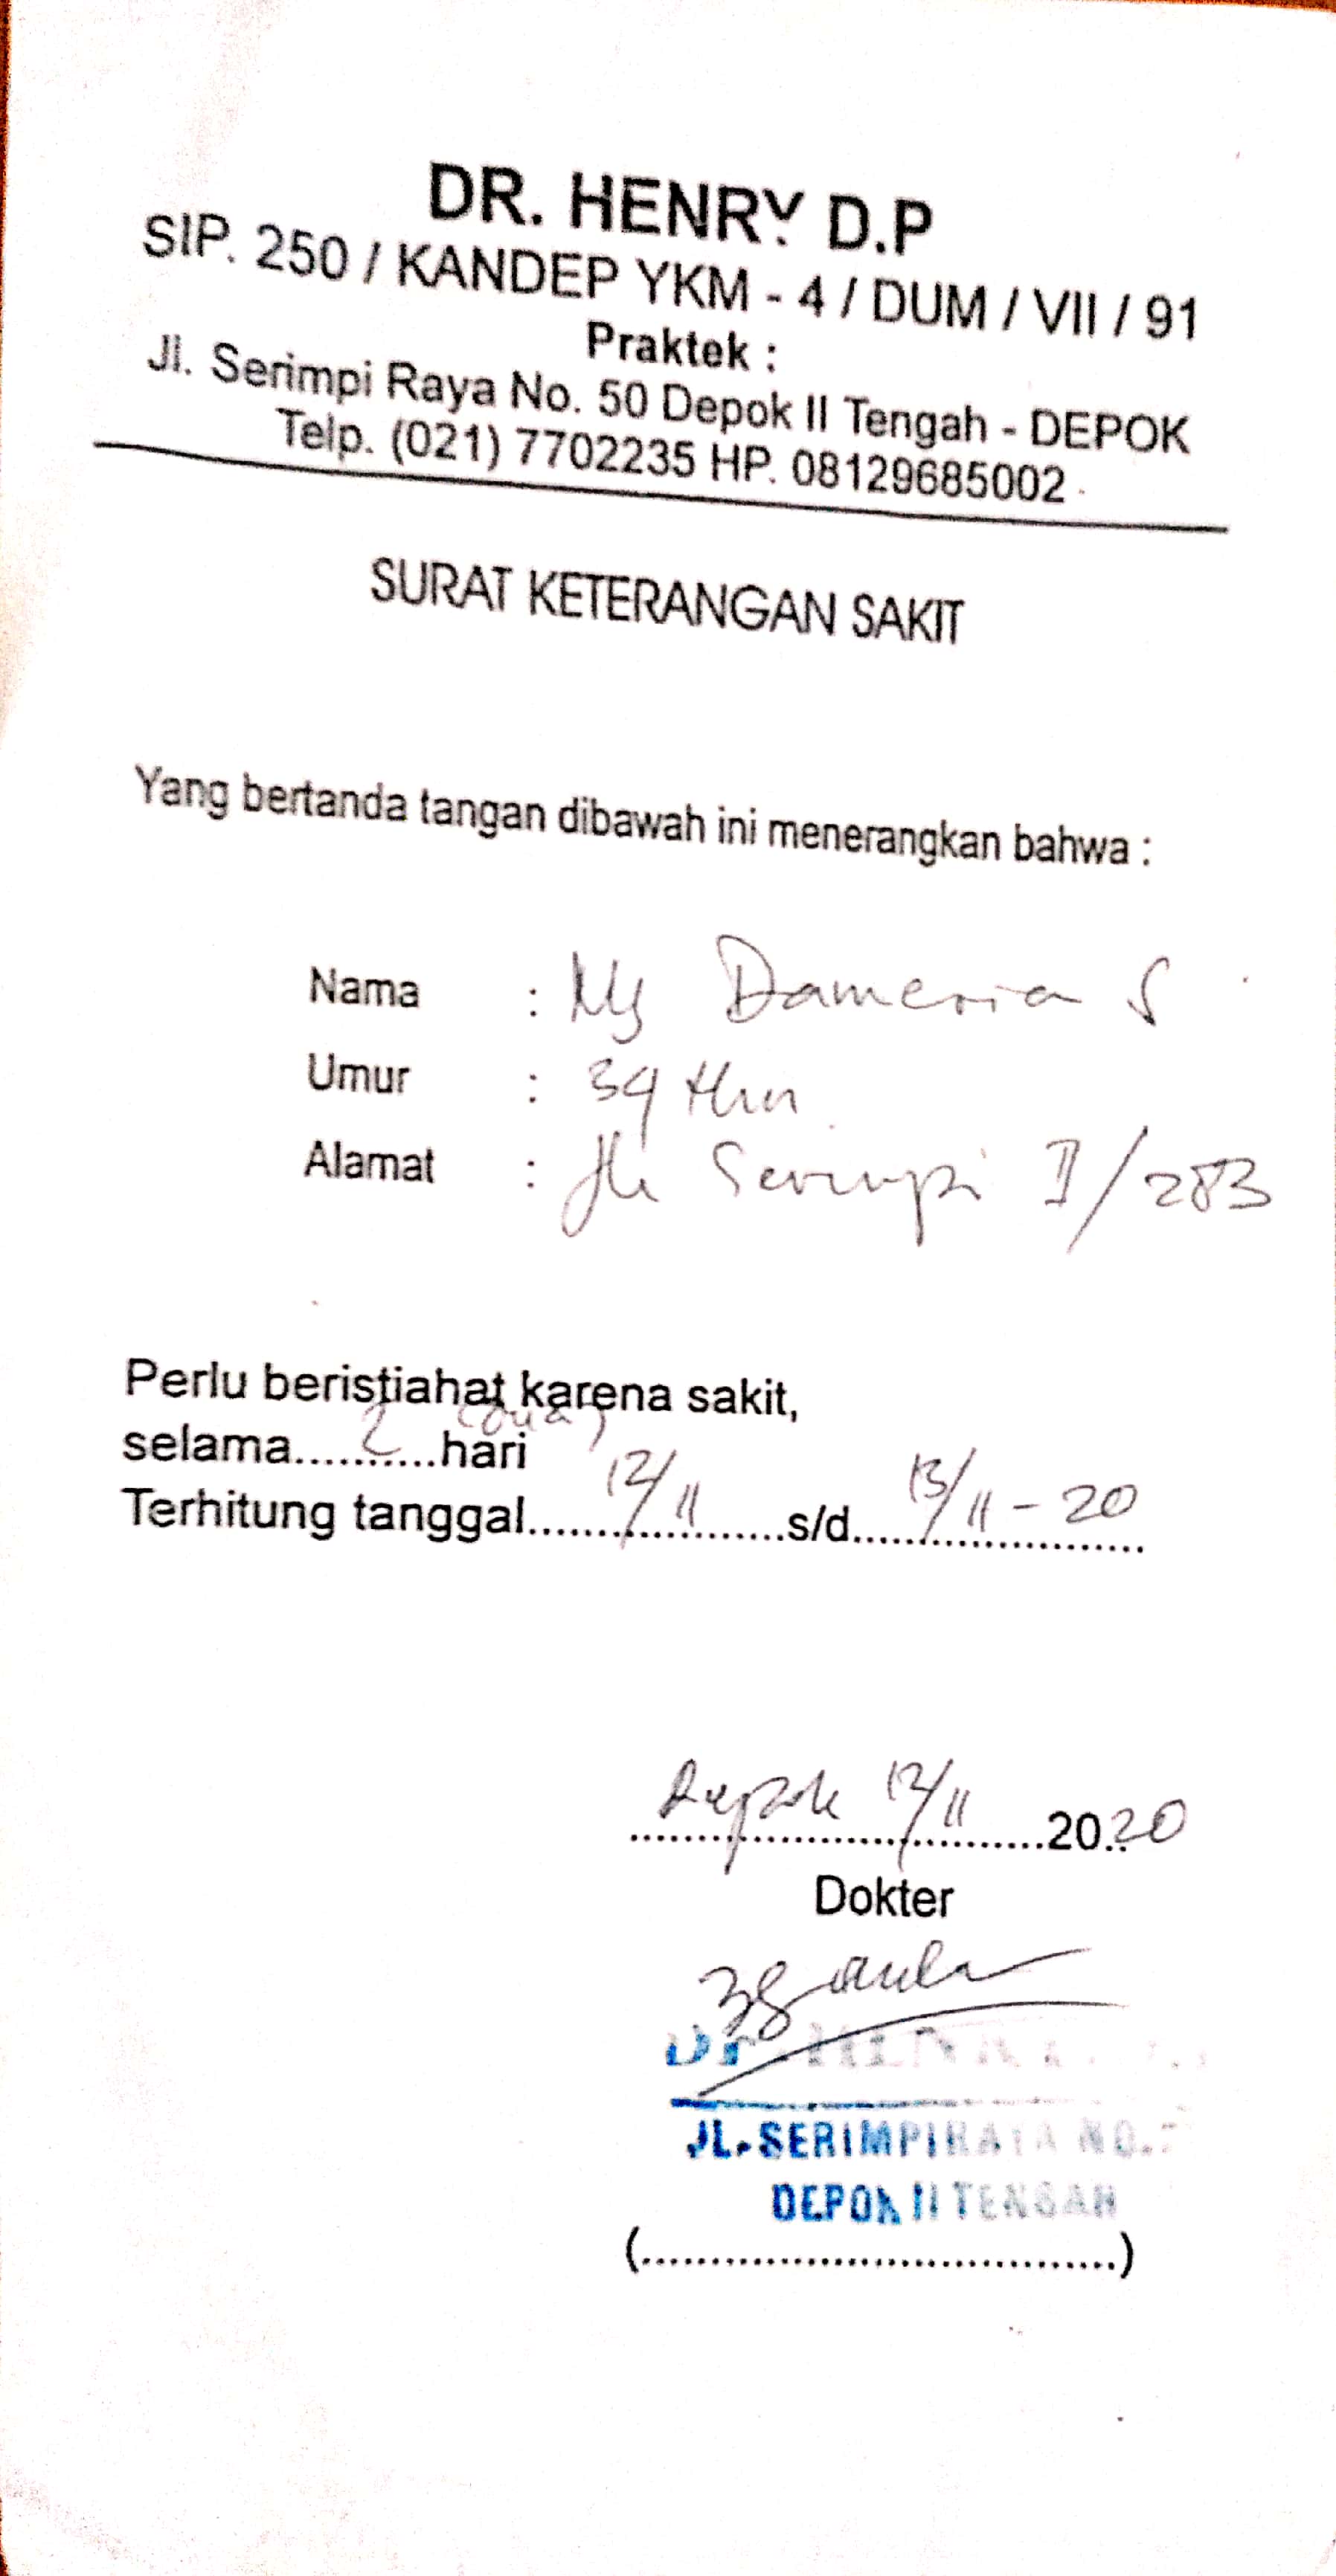 DR. HENRY D.P
SIP. 250 / KANDEP YKM - 4 / DUM / VII / 91
Praktek :
Jl. Serimpi Raya No. 50 Depok II Tengah - DEPOK
Telp. (021) 7702235 HP. 08129685002
SURAT KETERANGAN SAKIT
Yang bertanda tangan dibawah ini menerangkan bahwa :
Nama : Ny Dameria S
Umur : 39 thn
Alamat : Jln Serimpi II/
Perlu beristiahat karena sakit,
selama..........2 (dua) hari
Terhitung tanggal 12/11 s/d 13/11 - 20
Depok 12/11 2020
Dokter
Dr.
JL. SERIMPI RAYA NO.
DEPOK II TENGAH
(..................................)